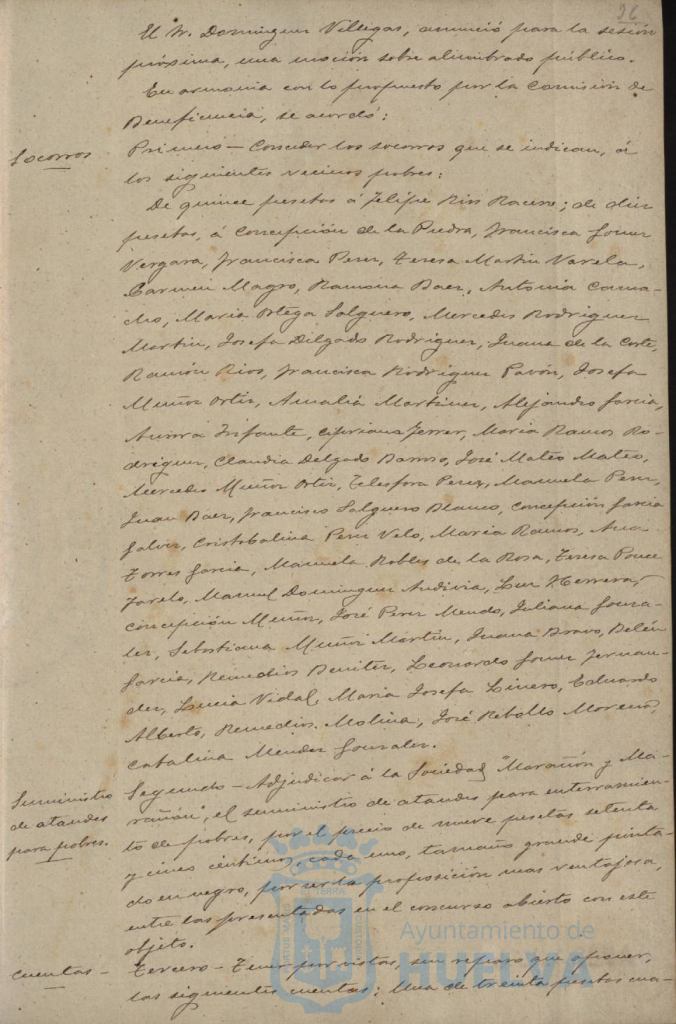 96
El Sr. Dominguez Villegas, anunció para la sesión
próxima, una moción sobre alumbrado público.
En armonia con lo propuesto por la Comisión de
Beneficencia, se acordó:
Socorros
Primero – Conceder los socorros que se indican, á
los siguientes vecinos pobres:
De quince pesetas á Felipe Rios Racero; de diez
pesetas, á Concepción de la Piedra, Francisca Gomez
Vergara, Francisca Perez, Teresa Martin Varela,
Carmen Magro, Ramona Baez, Antonia Cama-
cho, Maria Ortega Salguero, Mercedes Rodriguez
Martin, Josefa Delgado Rodriguez, Juana de la Corte,
Ramón Rios, Francisca Rodriguez Pavón, Josefa
Muñoz Ortiz, Amalia Martinez, Alejandro Garcia,
Aurora Infante, Cipriana Ferrer, Maria Ramos Ro-
driguez, Claudia Delgado Barroso, José Mateo Mateo,
Mercedes Muñoz Ortiz, Telesfora Perez, Manuela Perez,
Juan Baez, Francisco Salguero Blanco, Concepción Garcia
Galvez, Cristobalina Perez Velo, Maria Ramos, Ana
Torres Garcia, Manuela Robles de la Rosa, Teresa Ponce
Manuel Dominguez Andivia, Luz Herrera,
Concepción Muñoz, José Perez Mendo, Juliana Gonza-
lez, Sebastiana Muñoz Martin, Juana Bravo, Belén
Garcia, Remedios Benitez, Leonardo Gomez Fernan-
dez, Lucia Vidal, Maria Josefa Linero, Eduardo
Alberto, Remedios Molina, José Rebollo Moreno,
Catalina Mendez Gonzalez.
Suministro
de ataudes
para pobres.
Segundo – Adjudicar á la Sociedad "Marañón y Ma-
rañón", el suministro de ataudes para enterramien-
to de pobres, por el precio de nueve pesetas setenta
y cinco céntimos, cada uno, tamaño grande pinta-
do en negro, por ser la proposición mas ventajosa,
entre las presentadas en el concurso abierto con este
objeto.
Cuentas –
Tercero – Tener por vistas, sin reparo que oponer,
las siguientes cuentas: Una de treinta pesetas cua-
Ayuntamiento de
HUELVA